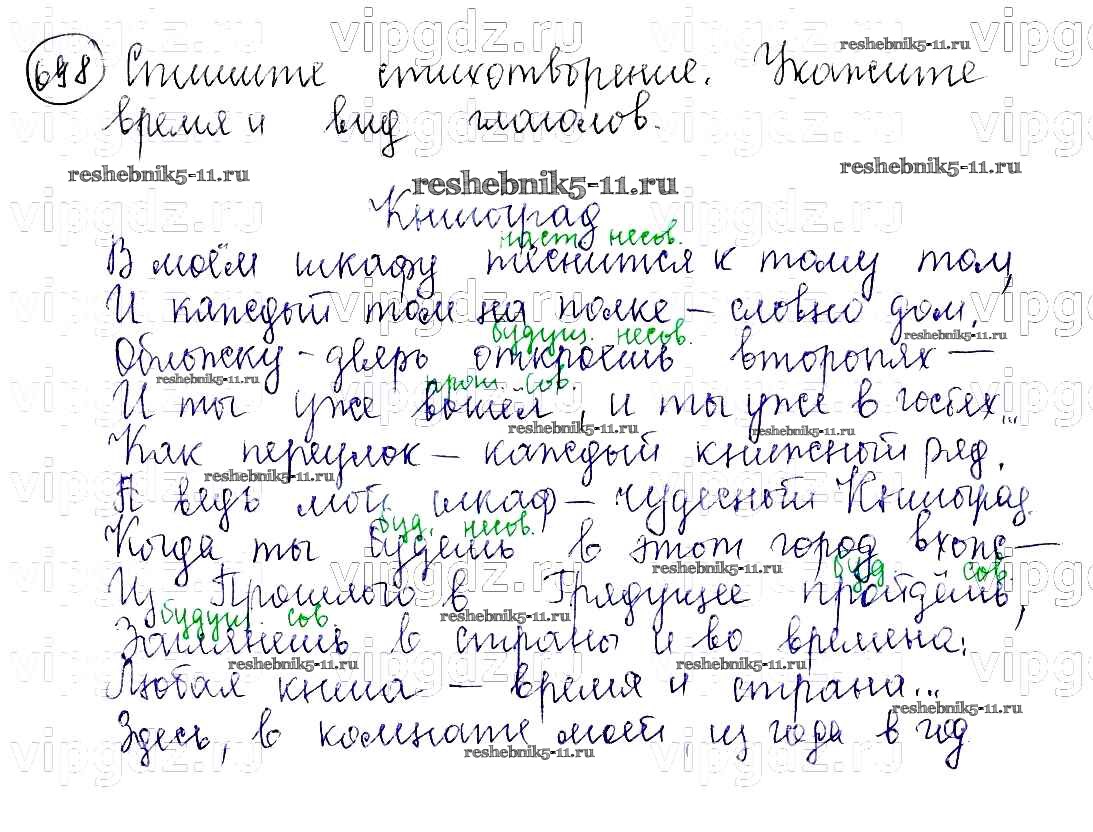 698 Спишите стихотворение. Укажите
время и вид глаголов.
reshebnik5-11.ru
Книгоград
наст. несов.
В моём шкафу теснится к тому том,
И каждый том на полке – словно дом.
будущ. несов.
Обложку-дверь откроешь второпях –
прош. сов.
И ты уже вошёл, и ты уже в гостях...
Как переулок – каждый книжный ряд.
А ведь мой шкаф – чудесный Книгоград.
буд. несов.
Когда ты будешь в этот город вхож –
буд. сов.
Из Прошлого в Грядущее пройдёшь,
будущ. сов.
Заглянешь в страны и во времена:
Любая книга – время и страна...
Здесь, в комнате моей, из года в год